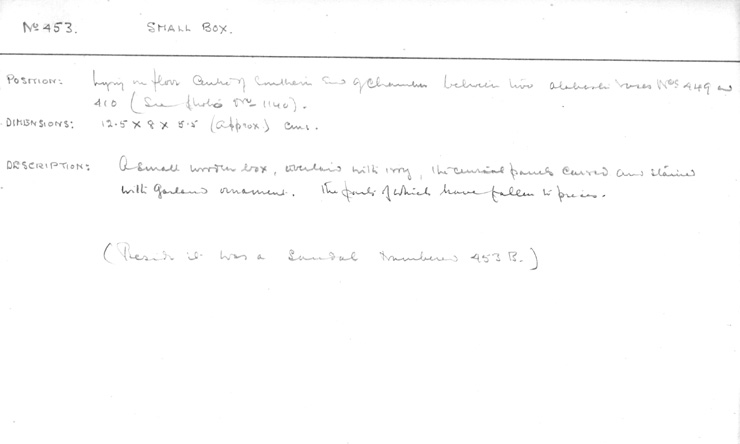 No 453. SMALL BOX.
POSITION: Lying on floor Centre of Southern End of Chamber between two alabaster vases Nos 449 and
410 (See photo No 1140).
DIMENSIONS: 12.5 x 8 x 5.5 (approx.) cms.
DESCRIPTION: A small wooden box, overlaid with ivory, the central panels carved and stained
with Garland ornament. The parts of which have fallen to pieces.
(Beside it was a Sandal Numbered 453 B.)